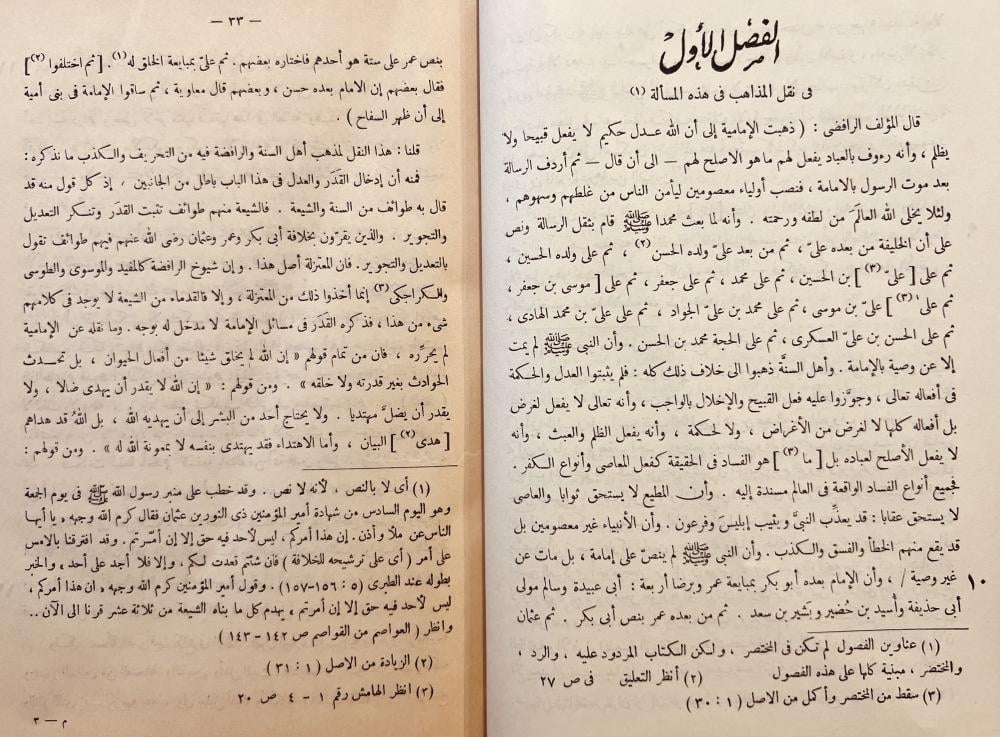 الفصل الأول
فى نقل المذاهب فى هذه المسألة (١)
قال المؤلف الرافضى : ( ذهبت الإمامية إلى أن الله عدل حكيم لا يفعل قبيحا ولا
يظلم ، وأنه رءوف بالعباد يفعل لهم ما هو الاصلح لهم — الى أن قال — ثم أردف الرسالة
بعد موت الرسول بالامامة ، فنصب أولياء معصومين ليأمن الناس من غلطهم وسهوهم ،
ولئلا يخلى الله العالَم من لطفه ورحمته . وأنه لما بعث محمدا ﷺ قام بثقل الرسالة ونص
على أن الخليفة من بعده علىّ ، ثم من بعد علىّ ولده الحسن (٢) ، ثم على ولده الحسين ،
ثم على [ علىّ (٣) ] بن الحسين ، ثم على محمد ، ثم على جعفر ، ثم على [ موسى بن جعفر ،
ثم على (٣) ] علىّ بن موسى ، ثم على محمد بن علىّ الجواد ، ثم على علىّ بن محمد الهادى ،
ثم على الحسن بن علىّ العسكرى ، ثم على الحجة محمد بن الحسن . وأن النبى ﷺ لم يمت
إلا عن وصية بالإمامة . وأهل السنَّة ذهبوا الى خلاف ذلك كله : فلم يثبتوا العدل والحكمة
فى أفعاله تعالى ، وجوَّزوا عليه فعل القبيح والإخلال بالواجب ، وأنه تعالى لا يفعل لغرض
بل أفعاله كلها لا لغرض من الأغراض ، ولا لحكمة ، وأنه يفعل الظلم والعبث ، وأنه
لا يفعل الأصلح لعباده بل [ ما (٣) ] هو الفساد فى الحقيقة كفعل المعاصى وأنواع الكفر .
فجميع أنواع الفساد الواقعة فى العالم مسندة إليه . وأن المطيع لا يستحق ثوابا والعاصى
لا يستحق عقابا : قد يعذِّب النبىَّ ويثيب إبليسَ وفرعون . وأن الأنبياء غير معصومين بل
قد يقع منهم الخطأ والفسق والكذب . وأن النبى ﷺ لم ينصّ على إمامة ، بل مات عن
غير وصية / ، وأن الإمام بعده أبو بكر بمبايعة عمر وبرضا أربعة : أبى عبيدة وسالم مولى
١٠
أبى حذيفة وأسيد بن حُضير وبشير بن سعد . ثم من بعده عمر بنص أبى بكر . ثم عثمان
(١) عناوين الفصول لم تكن فى المختصر ، ولكن الكتاب المردود عليه ، والرد ،
والمختصر ، مبنية كلها على هذه الفصول (٢) أنظر التعليق فى ص ٢٧
(٣) سقط من المختصر وأكمل من الاصل ( ١ : ٣٠ )
— ٣٣ —
بنص عمر على ستة هو أحدهم فاختاره بعضهم . ثم علىّ بمبايعة الخلق له (١) . [ ثم اختلفوا (٢) ]
فقال بعضهم إن الامام بعده حسن ، وبعضهم قال معاوية ، ثم ساقوا الإمامة فى بنى أمية
إلى أن ظهر السفاح ) .
قلنا : هذا النقل لمذهب أهل السنة والرافضة فيه من التحريف والكذب ما نذكره :
فمنه أن إدخال القَدَر والعدل فى هذا الباب باطل من الجانبين ، إذ كل قول منه قد
قال به طوائف من السنة والشيعة . فالشيعة منهم طوائف تثبت القدَر وتنكر التعديل
والتجوير . والذين يقرّون بخلافة أبى بكر وعمر وعثمان رضى الله عنهم فيهم طوائف تقول
بالتعديل والتجوير . فان المعتزلة أصل هذا . وإن شيوخ الرافضة كالمفيد والموسوى والطوسى
والكراجكى (٣) إنما أخذوا ذلك من المعتزلة ، وإلا فالقدماء من الشيعة لا يوجد فى كلامهم
شىء من هذا ، فذكره القَدَر فى مسائل الإمامة لا مدخل له بوجه . وما نقله عن الإمامية
لم يحرِّره ، فان من تمام قولهم « إن الله لم يخلق شيئا من أفعال الحيوان ، بل تحدث
الحوادث بغير قدرته ولا خلقه » . ومن قولهم : « إن الله لا يقدر أن يهدى ضالا ، ولا
يقدر أن يضلَّ مهتديا . ولا يحتاج أحد من البشر إلى أن يهديه الله ، بل اللهُ قد هداهم
[ هدى (٢) ] البيان ، وأما الاهتداء فقد يهتدى بنفسه لا بمعونة الله له » . ومن قولهم :
(١) أى لا بالنص ، لأنه لا نص . وقد خطب على منبر رسول الله ﷺ فى يوم الجمعة
وهو اليوم السادس من شهادة أمير المؤمنين ذى النورين عثمان فقال كرم الله وجهه « يا أيها
الناس عن ملأ وأذن . إن هذا أمركم ، ليس لأحد فيه حق إلا إن أمّرتم . وقد افترقنا بالأمس
على أمر ( أى على ترشيحه للخلافة ) فان شئتم قعدت لكم . وإلا فلا أجد على أحد » والخبر
بطوله عند الطبرى ( ٥ : ١٥٦-١٥٧ ) وقول أمير المؤمنين كرم الله وجهه « ان هذا أمركم ،
ليس لأحد فيه حق إلا إن أمرتم » يهدم كل ما بناه الشيعة من ثلاثة عشر قرنا الى الآن ..
وانظر ( العواصم من القواصم ص ١٤٢ – ١٤٣ )
(٢) الزيادة من الاصل ( ١ : ٣١ )
(٣) انظر الهامش رقم ١ – ٤ ص ٢٠
م — ٣